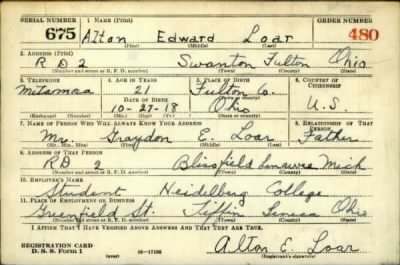 SERIAL NUMBER 1. NAME (Print) ORDER NUMBER
675 Alton Edward Loar 480
(First) (Middle) (Last)
2. ADDRESS (Print)
R D 2 Swanton Fulton Ohio
(Number and street or R. F. D. number) (Town) (County) (State)
3. TELEPHONE 4. AGE IN YEARS 5. PLACE OF BIRTH 6. COUNTRY OF CITIZENSHIP
Metamora 21 Fulton Co.
DATE OF BIRTH (Town or county)
10-27-18 Ohio U.S.
(Exchange) (Number) (Mo.) (Day) (Yr.) (State or country)
7. NAME OF PERSON WHO WILL ALWAYS KNOW YOUR ADDRESS 8. RELATIONSHIP OF THAT PERSON
Mr. Graydon E. Loar Father
(Mr., Mrs., Miss) (First) (Middle) (Last)
9. ADDRESS OF THAT PERSON
RD 2 Blissfield Lenawee Mich
(Number and street or R. F. D. number) (Town) (County) (State)
10. EMPLOYER'S NAME
Student Heidelberg College
11. PLACE OF EMPLOYMENT OR BUSINESS
Greenfield St. Tiffin Seneca Ohio
(Number and street or R. F. D. number) (Town) (County) (State)
I AFFIRM THAT I HAVE VERIFIED ABOVE ANSWERS AND THAT THEY ARE TRUE.
REGISTRATION CARD
D. S. S. FORM 1 (over) Alton E. Loar
(Registrant's signature)